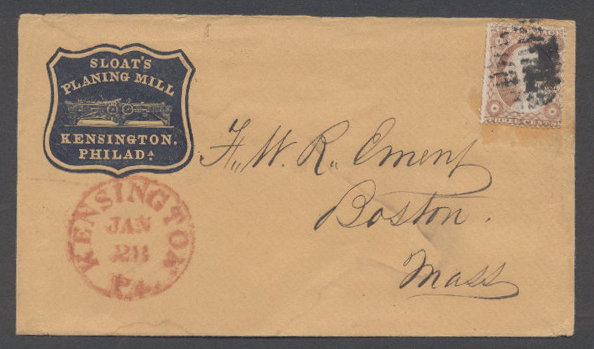 SLOAT'S
PLANING MILL
KENSINGTON,
PHILADA.
KENSINGTON
JAN
28
Pa
F. W. R. Ement
Boston.
Mass
THREE CENTS